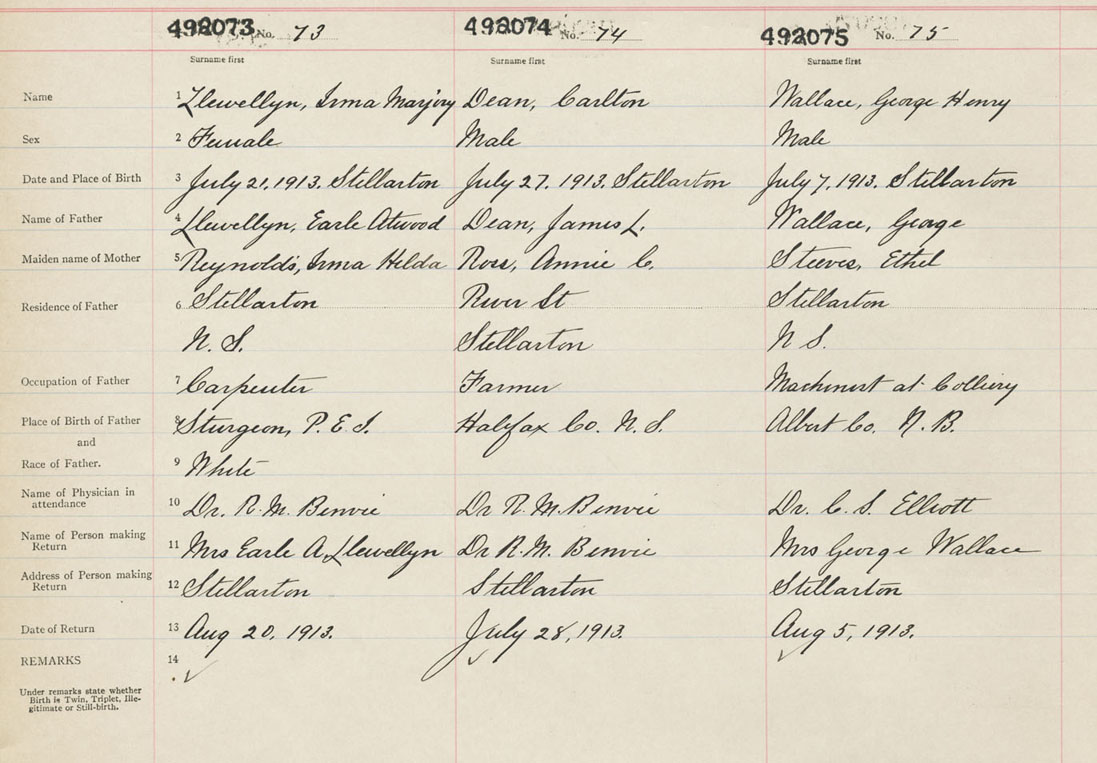 492073 No. 73 492074 No. 74 492075 No. 75
Surname first Surname first Surname first
Name 1 Llewellyn, Irma Marjory Dean, Carlton Wallace, George Henry
Sex 2 Female Male Male
Date and Place of Birth 3 July 21, 1913. Stellarton July 27. 1913. Stellarton July 7, 1913. Stellarton
Name of Father 4 Llewellyn, Earle Atwood Dean, James L. Wallace, George
Maiden name of Mother 5 Reynolds, Irma Hilda Ross, Annie C. Steeves, Ethel
Residence of Father 6 Stellarton River St Stellarton
N. S. Stellarton N S.
Occupation of Father 7 Carpenter Farmer Machinist at Colliery
Place of Birth of Father 8 Sturgeon, P. E. I. Halifax Co. N. S. Albert Co. N. B.
and
Race of Father. 9 White
Name of Physician in
attendance 10 Dr. R. M. Benvie Dr R. M. Benvie Dr. C. S. Elliott
Name of Person making
Return 11 Mrs Earle A. Llewellyn Dr R. M. Benvie Mrs George Wallace
Address of Person making
Return 12 Stellarton Stellarton Stellarton
Date of Return 13 Aug 20, 1913. July 28, 1913. Aug 5, 1913.
REMARKS 14
Under remarks state whether
Birth is Twin, Triplet, Ille-
gitimate or Still-birth.